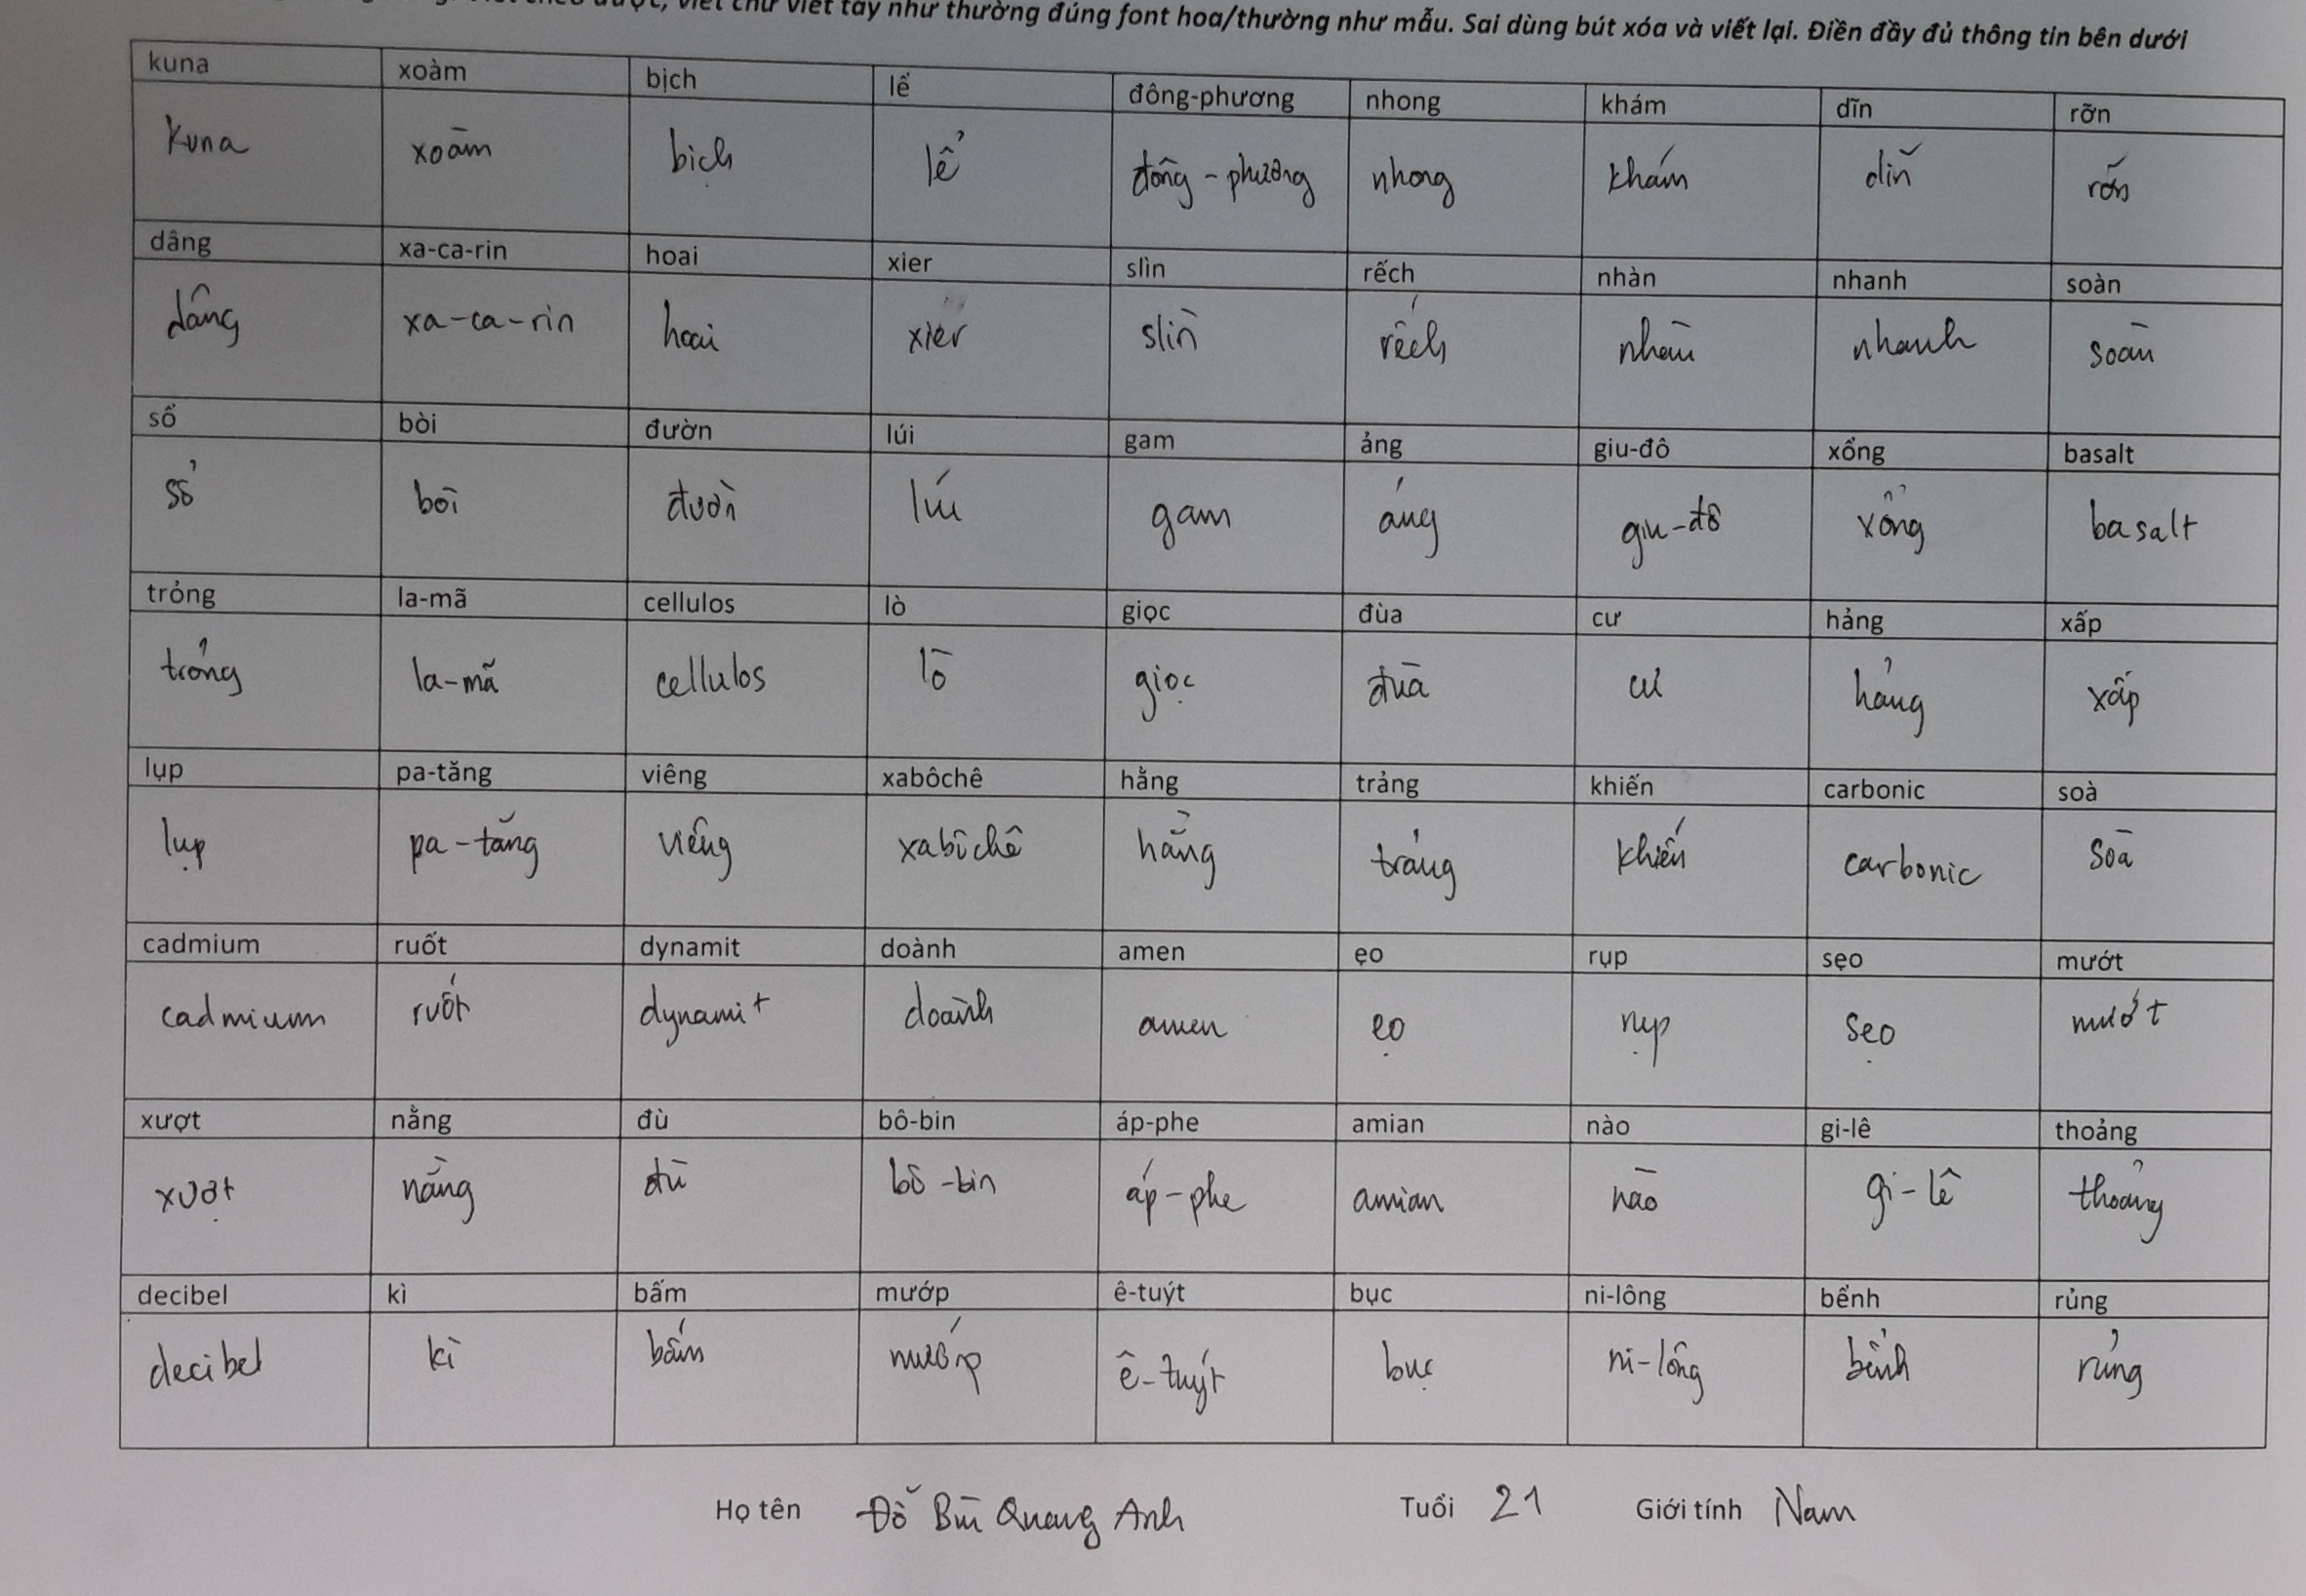 viết chữ viết tay như thường đúng font hoa/thường như mẫu. Sai dùng bút xóa và viết lại. Điền đầy đủ thông tin bên dưới
kuna xoàm bịch lể đông-phương nhong khám dĩn rỡn
kuna xoàm bịch lể đông-phương nhong khám dĩn rỡn
dâng xa-ca-rin hoai xier slìn rếch nhàn nhanh soàn
dâng xa-ca-rin hoai xier slìn rếch nhàn nhanh soàn
sổ bòi đườn lúi gam ảng giu-đô xổng basalt
sổ bòi đườn lúi gam ảng giu-đô xổng basalt
trỏng la-mã cellulos lò giọc đùa cư hảng xấp
trỏng la-mã cellulos lò giọc đùa cư hảng xấp
lụp pa-tăng viêng xabôchê hằng trảng khiến carbonic soà
lụp pa-tăng viêng xabôchê hằng trảng khiến carbonic soà
cadmium ruốt dynamit doành amen ẹo rụp sẹo mướt
cadmium ruốt dynamit doành amen ẹo rụp sẹo mướt
xượt nằng đù bô-bin áp-phe amian nào gi-lê thoảng
xượt nằng đù bô-bin áp-phe amian nào gi-lê thoảng
decibel kì bấm mướp ê-tuýt bục ni-lông bểnh rủng
decibel kì bấm mướp ê-tuýt bục ni-lông bểnh rủng
Họ tên Đỗ Bùi Quang Anh Tuổi 21 Giới tính Nam